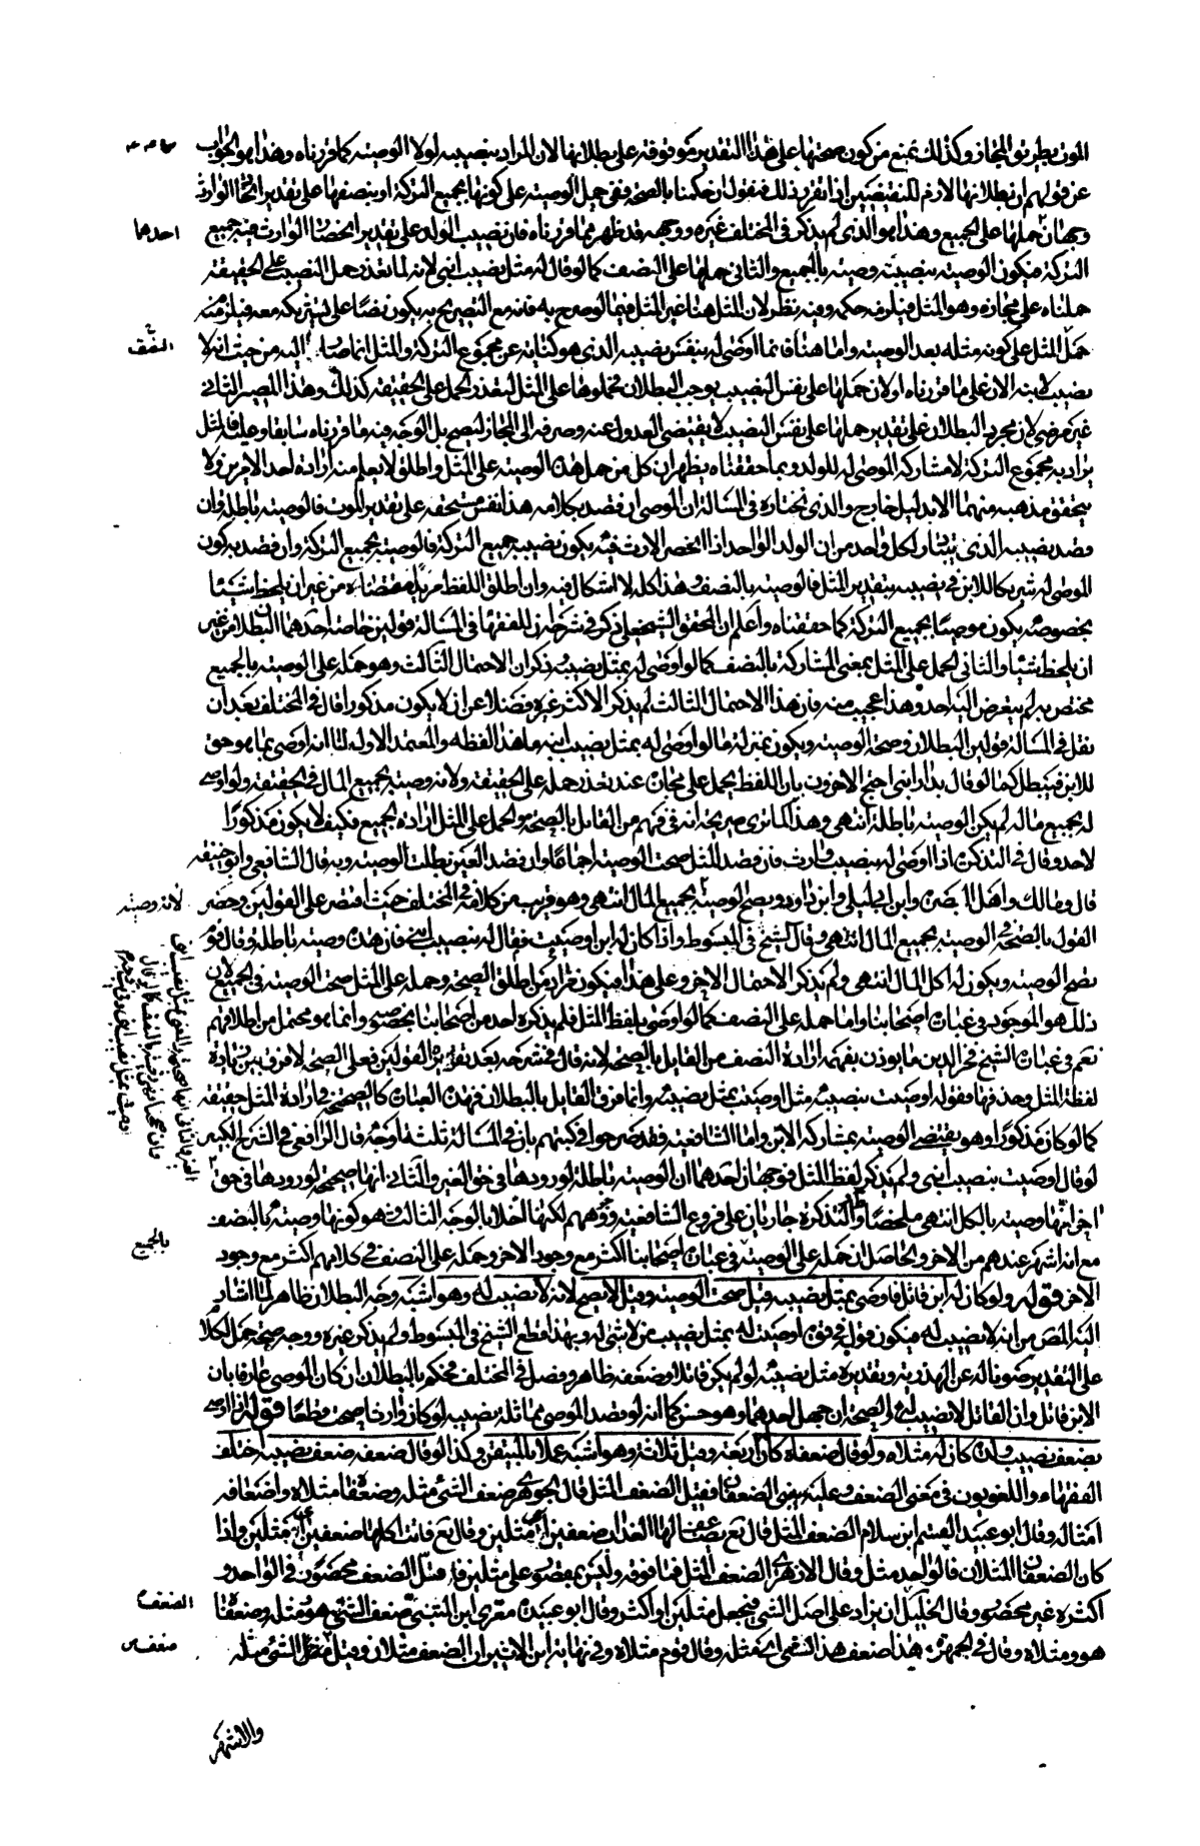 الموت بطريق المجاز وكذلك نمنع من كون صحتها على هذا التقدير موقوفة على بطلانها لان المراد بنصيبه لولا الوصية كما قررناه وهذا هو الجواب
عن قولهم ان بطلانها لازم للنقيضين اذا تقرر ذلك فنقول ان حكمنا بالصحة ففي حمل الوصية على كونها بجميع التركة او بنصفها على تقدير اتحاد الوارث
وجهان حملها على الجميع وهذا هو الذي لم يذكر في المختلف غيره ووجهه قد ظهر مما قررناه فان نصيب الولد على تقدير انحصار الوارث فيه جميع
احدهما
التركة فيكون الوصية بنصيبه وصية بالجميع والثاني حملها على النصف كما لو قال له مثل نصيب ابني لانه لما تعذر حمل النصيب على الحقيقة
حملناه على مجازه وهو المثل فيلزمه حكمه وفيه نظر لان المثل هنا غير المثل فيما لو صرح به فانه مع التصريح به يكون نصا على تشريكه معه فيلزم منه
حمل المثل على كونه مثله بعد الوصية واما هنا فانما اوصى له بنفس نصيبه الذي هو كناية عن مجموع التركة والمثل انما صار اليه من حيث انه لا
نصيب لابنه الان على ما قررناه اولان حملها على نفس النصيب يوجب البطلان فحملوها على المثل لتعذر الحمل على الحقيقة كذلك وهذا المصير الثاني
غير مرضي لان مجرد البطلان على تقدير حملها على نفس النصيب لا يقتضي العدول عنه وصرفه الى المجاز ليصح بل الوجه فيه ما قررناه سابقا وعليه فالمثل
يراد به مجموع التركة لا مشاركة الموصى له للولد وبما حققناه يظهر ان كل من حمل هذه الوصية على المثل واطلق لا يعلم منه ارادة احد الامرين ولا
يتحقق مذهبه منهما الا بدليل خارج والذي نختاره في المسالة ان الموصي ان قصد بكلامه هذا نفس مستحقه على تقدير الموت فالوصية باطلة وان
قصد نصيبه الذي يتناول كل واحد من ان الولد الواحد اذا انحصر الارث فيه يكون نصيبه جميع التركة فالوصية بجميع التركة وان قصد به كون
الموصى له شريكا للابن في نصيبه بتقدير المثل فالوصية بالنصف وهذا كله لا اشكال فيه وان اطلق اللفظ مريدا مقتضاه من غير ان يلحظ شيئا
بخصوصه يكون موصيا بجميع التركة كما حققناه واعلم ان المحقق الشيخ علي ذكر في شرحه ان للفقهاء في المسالة قولين خاصة احدهما البطلان من غير
ان يلحظ شيئا والثاني الحمل على المثل بمعنى المشاركة بالنصف كما لو اوصى له بمثل نصيبه وذكر ان الاحتمال الثالث وهو حمله على الوصية بالجميع
مختص به لم يتعرض اليه احد وهذا عجيب منه فان هذا الاحتمال الثالث لم يذكر الاكثر غيره فضلا عن ان لا يكون مذكورا قال في المختلف بعد ان
نقل في المسالة قولين البطلان وصحة الوصية ويكون بمنزلة ما لو اوصى له بمثل نصيب ابنه ما هذا لفظه والمعتمد الاول لنا انه اوصى بما هو حق
للابن فتبطل كما لو قال بدار ابني احتج الاخرون بان اللفظ يحمل على مجازه عند تعذر حمله على الحقيقة ولانه وصية بجميع المال في الحقيقة ولو اوصى
له بجميع ماله لم يكن الوصية باطلة انتهى وهذا كما ترى صريح انه فهم من القائل بالصحة والحمل على المثل ارادة الجميع فكيف لا يكون مذكورا
لاحد وقال في التذكرة اذا اوصى له بنصيب وارث فان قصد المثل صحت الوصية اجماعا وان قصد العين بطلت الوصية وبه قال الشافعي وابو حنيفة
قال وقال مالك واهل البصرة وابن ابي ليلى وابن داود وتصح الوصية بجميع المال انتهى وهو قريب من كلامه في المختلف حيث اقتصر على القولين وحصر
لانه وصية
القول بالصحة في الوصية بجميع المال انتهى وقال الشيخ في المبسوط واذا كان له ابن اوصيت فقال له بنصيب ابني فان هذه وصية باطلة وقال قوم
تصح الوصية ويكون له كل المال انتهى ولم يذكر الاحتمال الاخر وعلى هذا فيكون مراد من اطلق الصحة وحمله على المثل صحت الوصية في الجميع لان
ذلك هو الموجود في عبارات اصحابنا واما حمله على النصف كما لو اوصى بلفظ المثل فلم يذكره احد من اصحابنا بخصوصه وانما هو محتمل من اطلاقهم
نعم في عبارة الشيخ فخر الدين ما يوذن بفهمه ارادة النصف من القائل بالصحة لانه قال في شرحه بعد تقريره القولين فعلى الصحة لا فرق بين زيادة
لفظة المثل وحذفها فقوله اوصيت بنصيبه مثل اوصيت بمثل نصيبه وانما فرق القائل بالبطلان فهذه العبارة كالصريحة في ارادة المثل حقيقة
كما لو كان مذكورا وهو يقتضي الوصية بمشاركة الابن واما الشافعية فقد صرحوا في كتبهم بان في المسالة ثلثة اوجه قال الرافعي في الشرح الكبير
لو قال اوصيت بنصيب ابني ولم يذكر لفظ المثل فوجهان احدهما ان الوصية باطلة لورودها في حق الغير والثاني انها صحيحة لورودها في حق
اخر انها وصية بالكل انتهى ملخصا والتذكرة جاريان على فروع الشافعية لكنهما اخلا بالوجه الثالث وهو كونها وصية بالنصف
مع انه اشهر عندهم من الاخر والحاصل ان حمله على الوصية في عبارات اصحابنا اكثر مع وجود الاخر وحمله على النصف في كلامهم اكثر مع وجود
بالجميع
الاخر قوله ولو كان له ابن قاتل فاوصى بمثل نصيبه قيل صحت الوصية وقيل لا تصح لانه لا نصيب له وهو اشبه وجه البطلان ظاهر لما اشار
اليه المص من انه لا نصيب له فيكون قوله في قوة اوصيت له بمثل نصيب من لا شيء له وبهذا قطع الشيخ في المبسوط ولم يذكر غيره ووجه صحته حمل الكلام
على التقدير صونا له عن الهذرية وتقديره مثل نصيبه لو لم يكن قاتلا وضعفه ظاهر وفصل في المختلف فحكم بالبطلان ان كان الموصي عارفا بان
الابن قاتل وان القاتل لا نصيب له والصحة ان جهل احدهما وهو حسن كما انه لو قصد الموصي مماثلة نصيبه لو كان وارثا صحت قطعا قوله اذا اوصى
بضعف نصيب ولده كان له مثلاه ولو قال ضعفاه كان اربعة وقيل ثلاثة وهو اشبه عملا بالمتيقن وكذا لو قال ضعف ضعف نصيبه اختلف
الفقهاء واللغويون في معنى الضعف وعليه يبنى الضعفان فقيل الضعف المثل قال الجوهري ضعف الشيء مثله وضعفاه مثلاه واضعافه
امثاله وقال ابو عبيد القسم ابن سلام الضعف المثل قال تع يضاعف لها العذاب ضعفين اي مثلين وقال تع فاتت اكلها ضعفين اي مثلين واذا
كان الضعفان المثلان فالواحد مثل وقال الازهري الضعف المثل فما فوقه وليس بمقصور على مثلين فاقل الضعف محصور في الواحد و
اكثره غير محصور وقال الخليل ان يزاد على اصل الشيء فيجعل مثلين او اكثر وقال ابو عبيدة معمر بن المثنى ضعف الشيء هو ومثله وضعفاه
الضعف
هو ومثلاه وقال في الجمهرة هذا ضعف هذا الشيء اي مثله وقال قوم مثلاه وفي نهاية ابن الاثير ان الضعف مثلان وقيل ضعف الشيء مثله
والاشهر